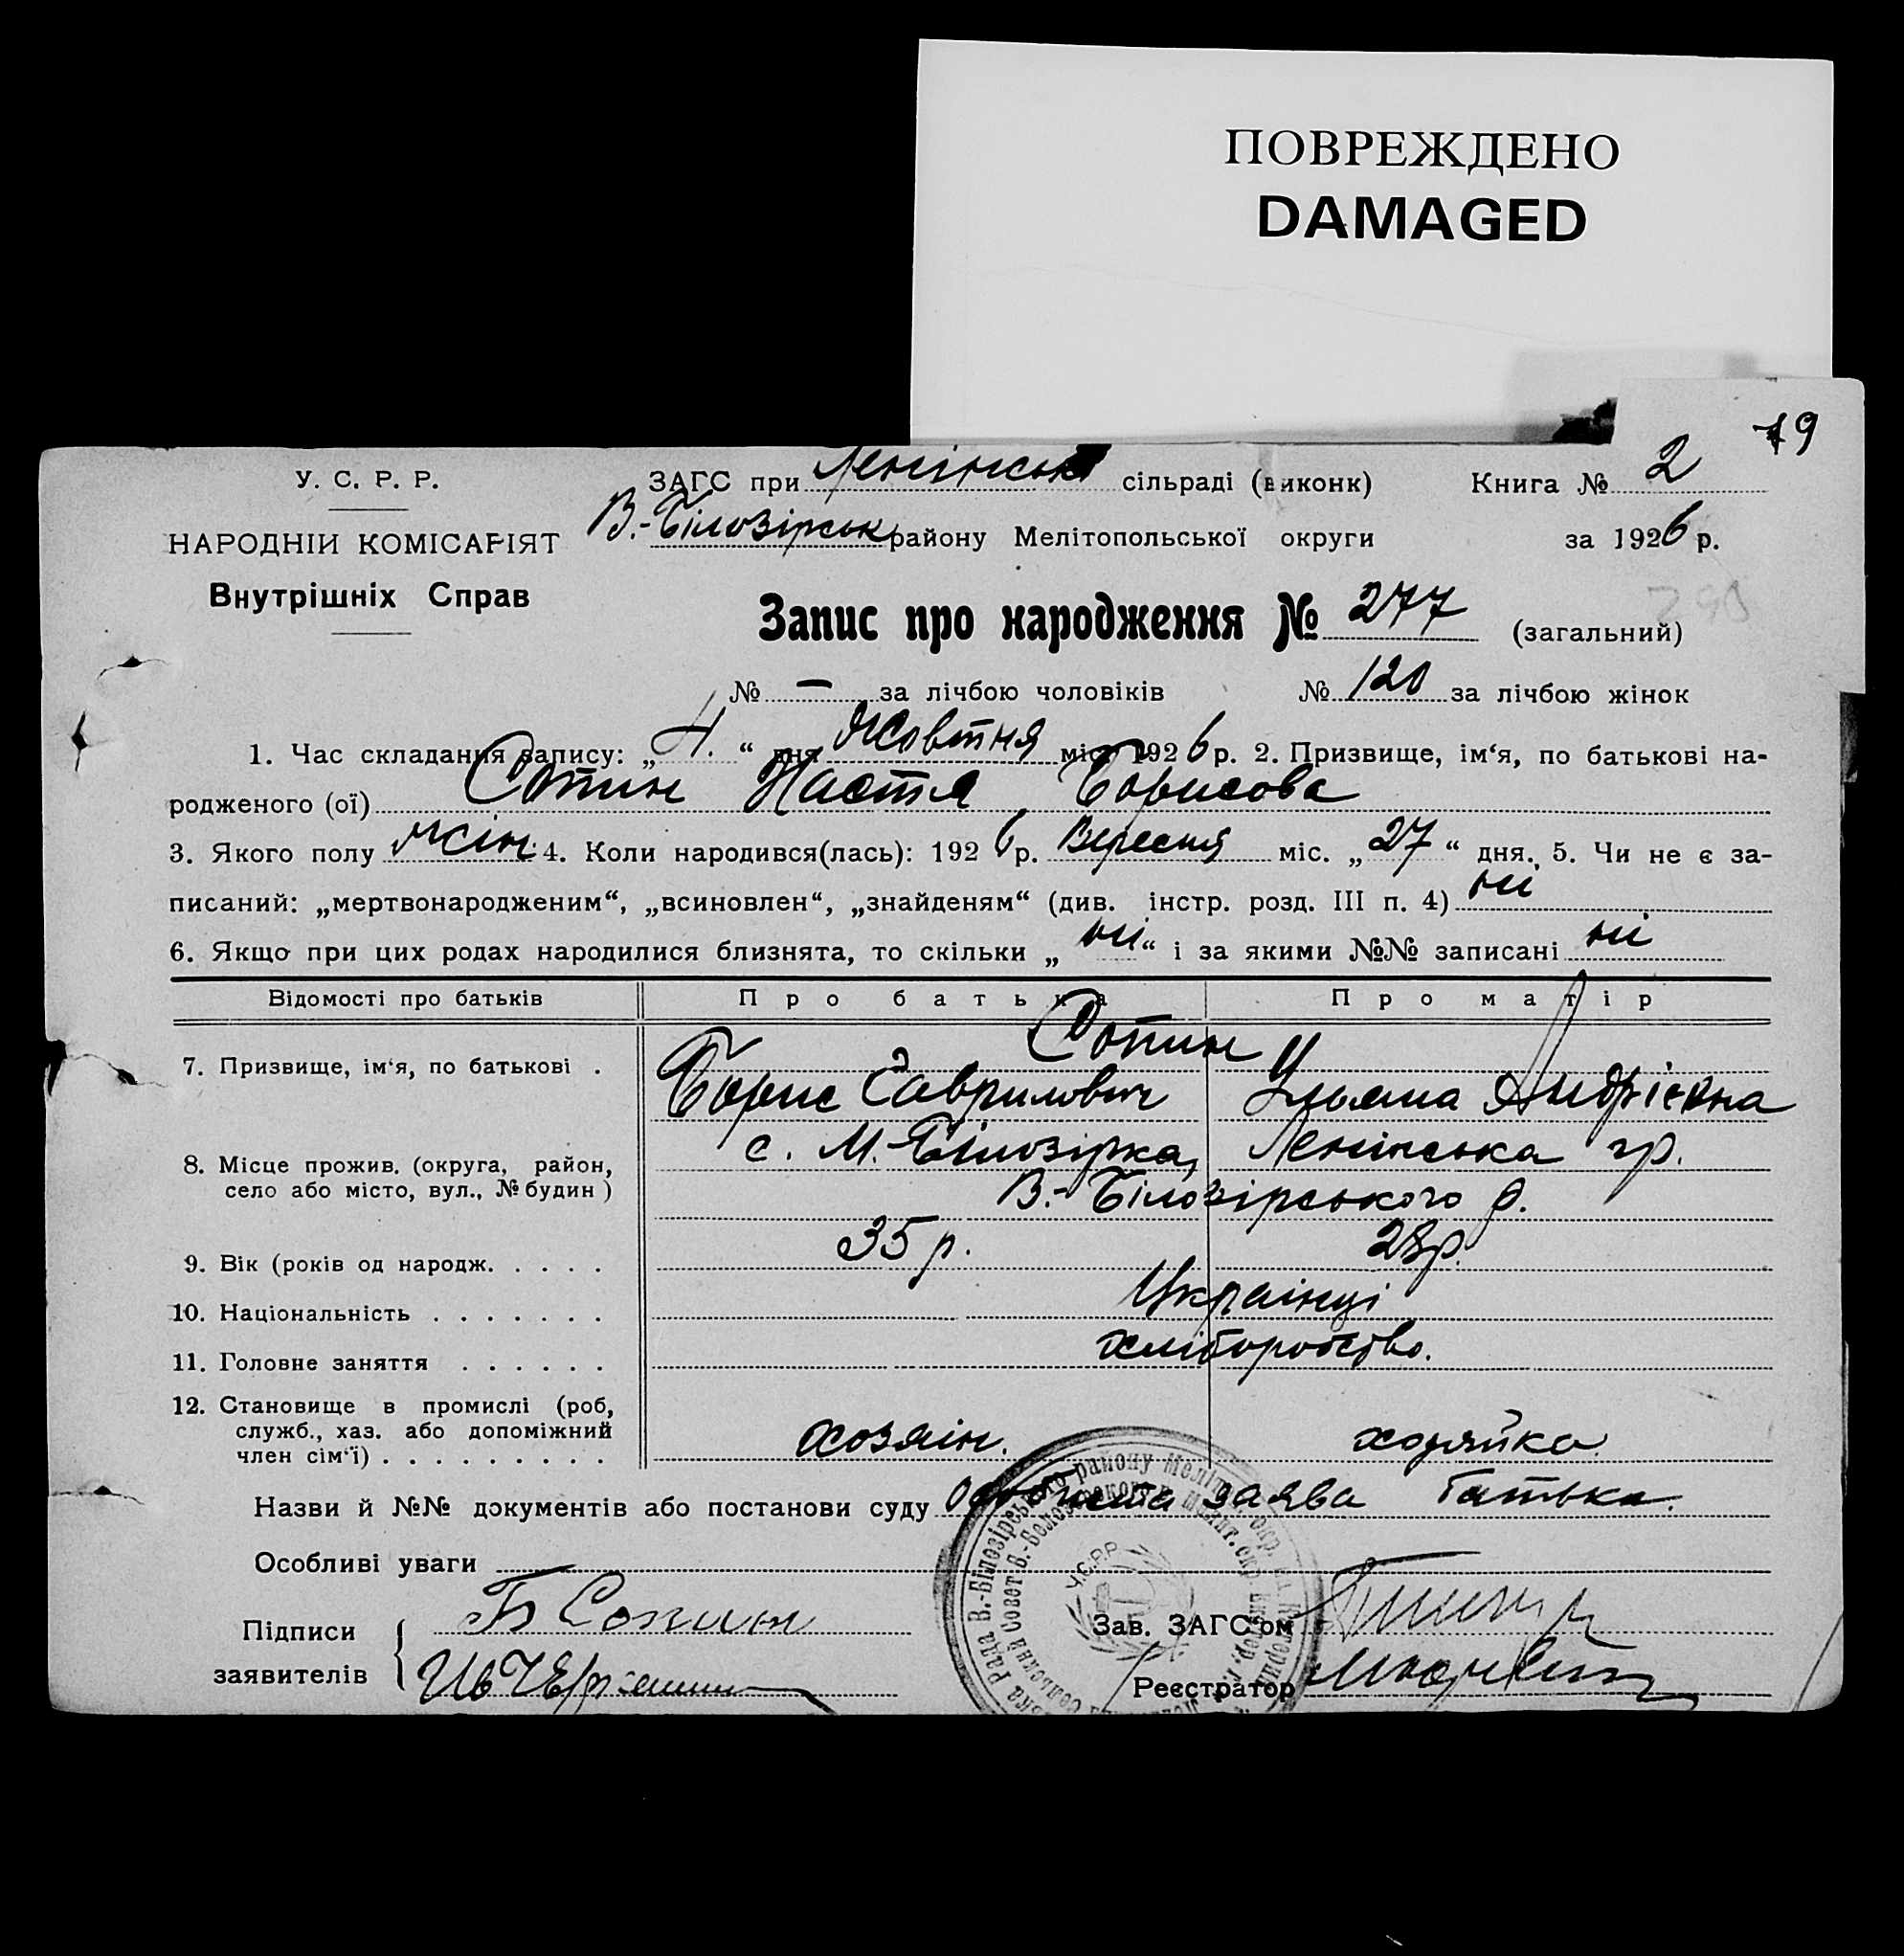 ПОВРЕЖДЕНО
DAMAGED
79
У. С. Р. Р.
ЗАГС при Ленінськ сільраді (виконк) Книга № 2
НАРОДНІЙ КОМІСАРІЯТ
В.-Білозірськ району Мелітопольської округи за 1926 р.
Внутрішніх Справ
Запис про народження № 277 (загальний)
290
№ — за лічбою чоловіків № 120 за лічбою жінок
1. Час складання запису: „4.“ дня Жовтня міс. 1926 р. 2. Призвище, ім‘я, по батькові на-
родженого (ої) Сопин Настя Борисова
3. Якого полу жін. 4. Коли народився(лась): 1926 р. Вересня міс. „27“ дня. 5. Чи не є за-
писаний: „мертвонародженим“, „всиновлен“, „знайденям“ (див. інстр. розд. III п. 4) ні
6. Якщо при цих родах народилися близнята, то скільки „ні“ і за якими №№ записані ні
Відомості про батьків Про батька Про матір
Сопин
7. Призвище, ім‘я, по батькові . Борис Гаврилович Уляна Андрієвна
8. Місце прожив. (округа, район, с. М.-Білозірка, Ленінська гр.
село або місто, вул., № будин) В.-Білозірського р.
9. Вік (років од народж. . . . . 35 р. 28 р.
10. Національність . . . . . . . Українці
11. Головне заняття . . . . . . хліборобство.
12. Становище в промислі (роб,
служб., хаз. або допоміжний
член сім‘ї) . . . . . . . . . хозяін. хозяйка.
Назви й №№ документів або постанови суду Особиста заява батька.
Особливі уваги
Підписи Б Сопин Зав. ЗАГС‘ом
заявителів Реєстратор
У.С.Р.Р.